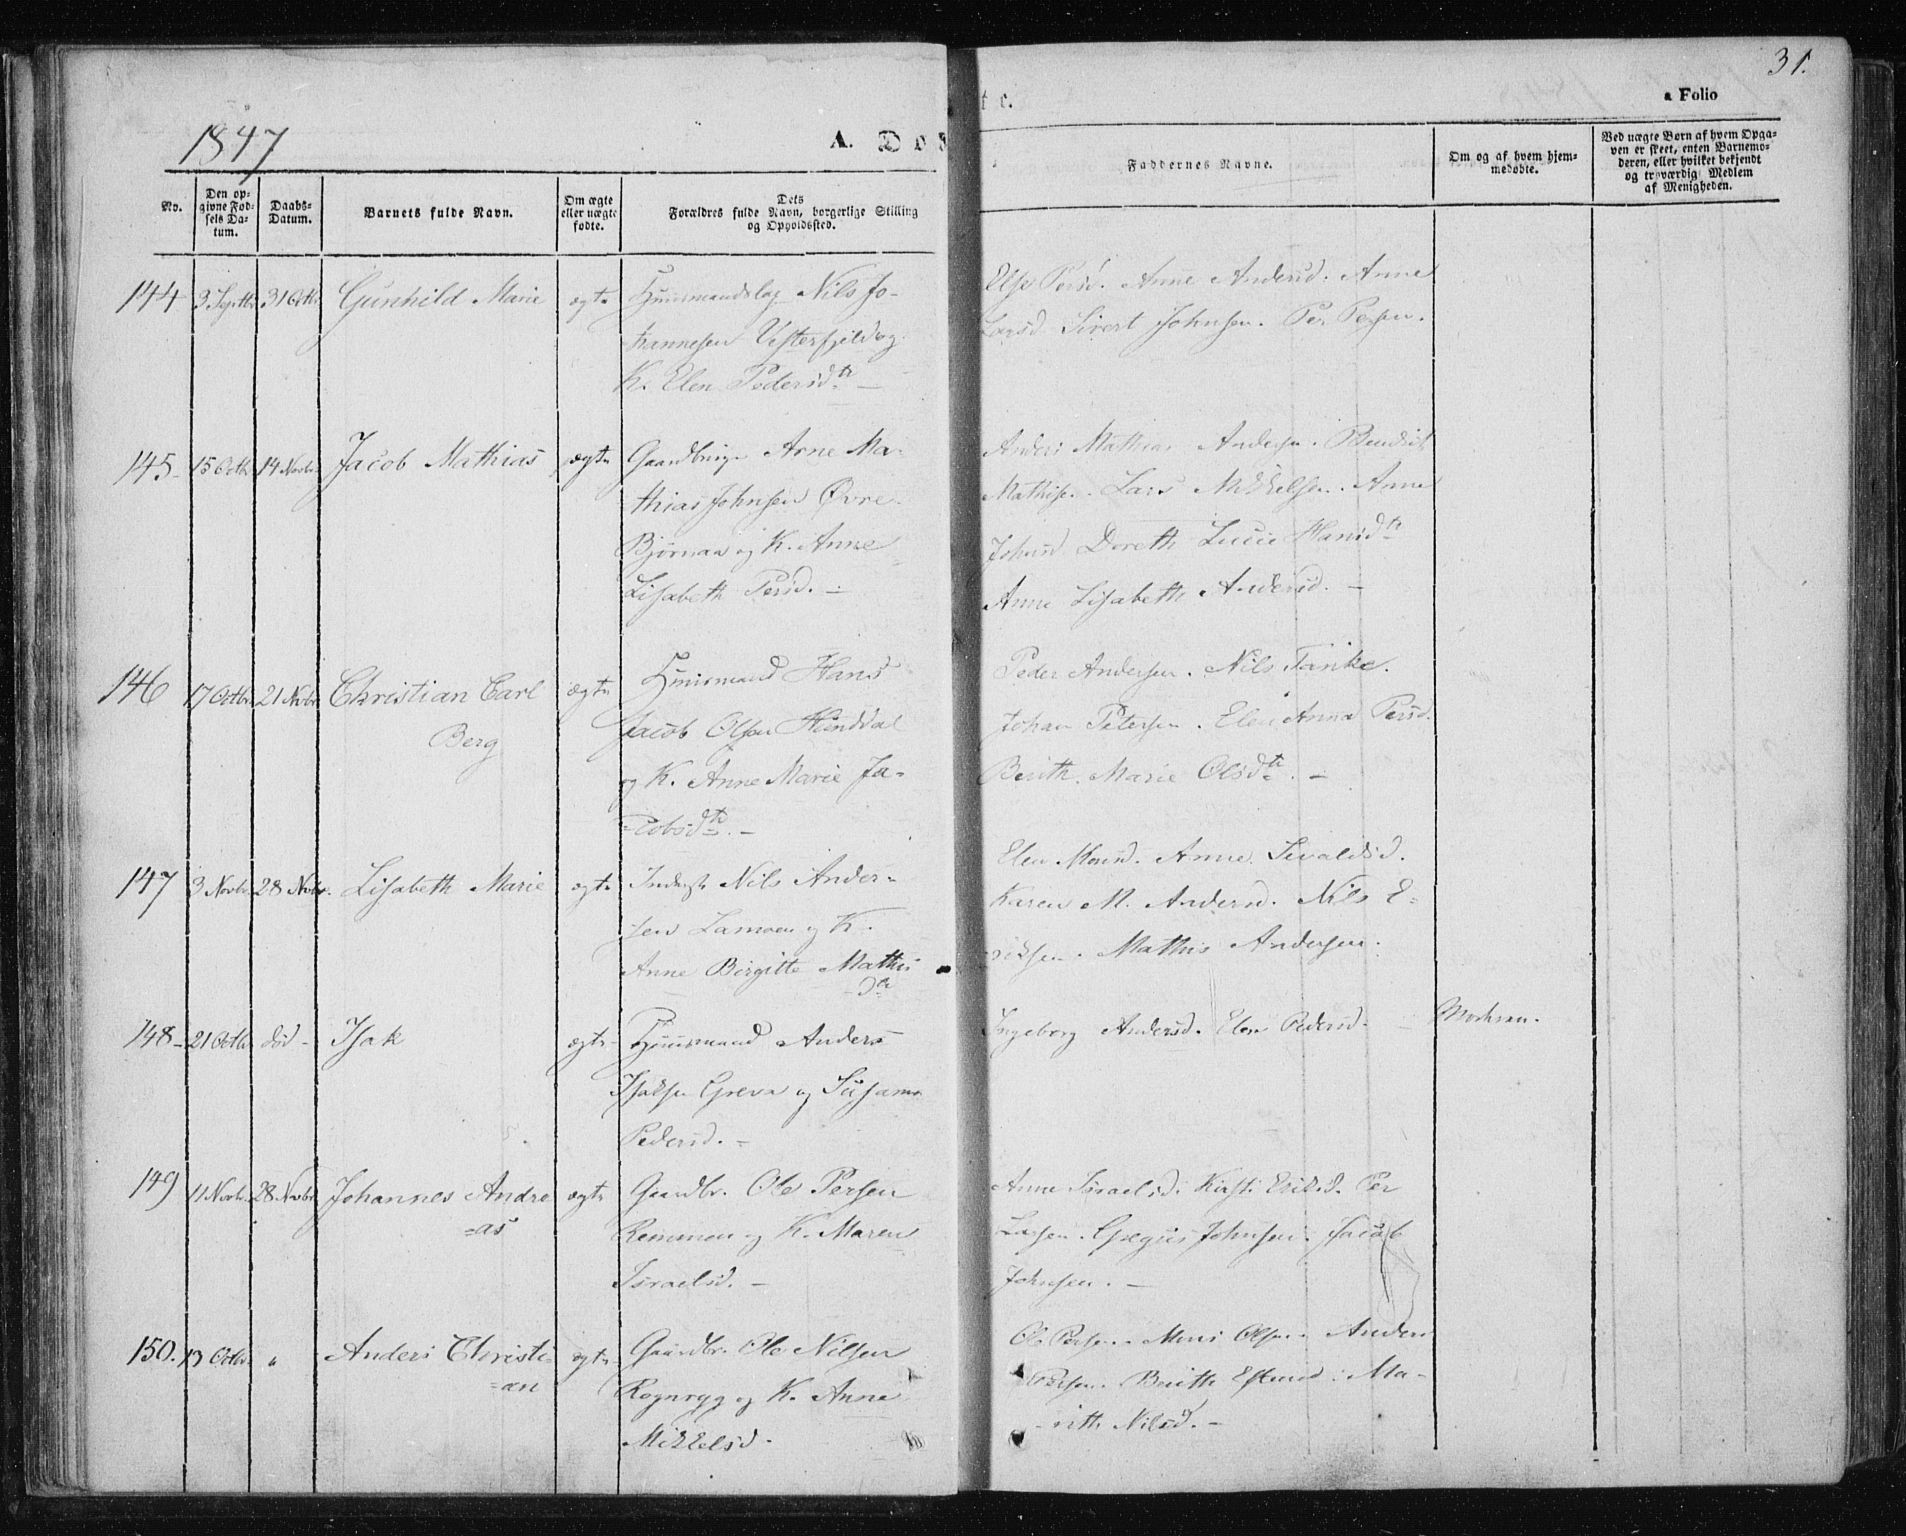 31.
a Folio
1847
A. Dob
t c.
No.
Den op-
givne Fød-
sels Da-
tum.
Daabs-
Datum.
Barnets fulde Navn.
Om ægte
eller uægte
fødte.
Dets
Forældres fulde Navn, borgerlige Stilling
og Opholdssted.
Faddernes Navne.
Om og af hvem hjem-
medøbte.
Ved uægte Børn af hvem Opga-
ven er skeet, enten Barnemo-
deren, eller hvilket bekjendt
og troværdig Medlem
af Menigheden.
144 3 Septbr 31 Octbr Gunhild Marie ægte Huusmandslag Nils Jo-
hannesen Vesterfjeld og
K. Elen Pedersdtr —
Else Persd. Anne Andersd. Anne
Larsd Sivert Johnsen. Per Persen.
145- 15 Octb. 14 Novbr. Jacob Mathias ægte Gaardbruger Arne Ma-
thias Johnsen Øvre
Bjørnaa og K. Anne
Lisabeth Persd. —
Anders Mathias Andersen. Bendict
Mathisen. Lars Mikkelsen. Anne
Johnsd Doreth Lucie Hansdtr
Anne Lisabeth Andersd. —
146 17 Octbr. 21 Novbr Christian Carl
Berg
ægte Huusmand Hans
Jacob Olsen Hunddal
og K. Anne Marie Ja-
=cobsdtr. —
Peder Andersen. Nils Tanke.
Johan Petersen. Elen Anna Persd.
Berith Marie Olsdtr. —
147 3 Novbr 28 Novbr. Lisabeth Marie ægte Inderst Nils Ander-
sen Lamoen og K.
Anne Birgitte Mathis
dtr
Elen Monsd. Anne Sivaldsd.
Karen M. Andersd. Nils E-
riksen. Mathis Andersen.
148- 21 Octbr død - Isak ægte Huusmand Anders
Isaksen Greva og Susanna
Pedersd. —
Ingeborg Andersd. Elen Pedersd. — Modren.
149 11 Novbr. 28 Novbr. Johannes Andre
=as
ægte Gaardbr. Ole Persen
Remmen og K. Maren
Israelsd. —
Anne Israelsd. Kirsti Eriksd. Per
Larsen. Gregus Johnsen. Jacob
Johnsen. —
150. 13 Octbr „ Anders Christi-
=an
ægte Gaardbr. Ole Nilsen
Rognryg og K. Anne
Mikkelsd.
Ole Persen. Mons Olsen. Anders
Persen. Berith Estensd. Ma-
-rith Nilsd. —